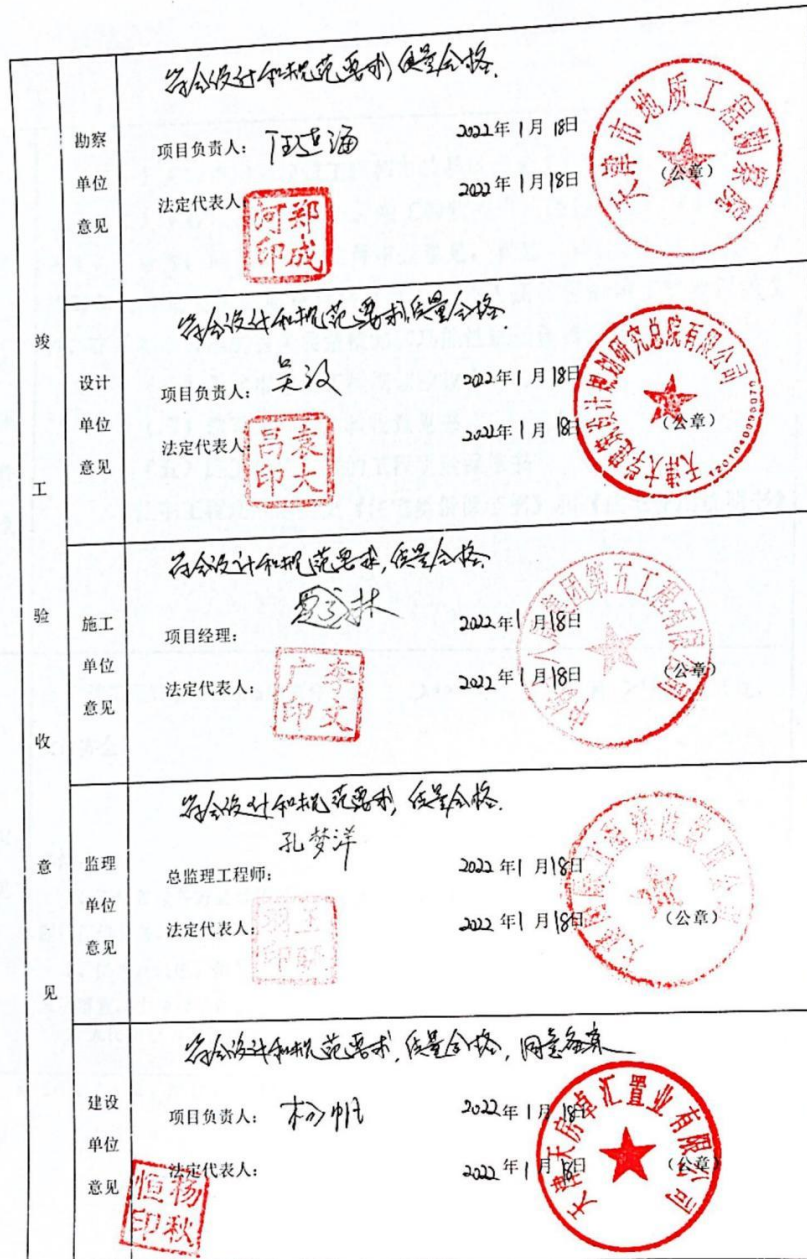 竣工验收意见
勘察单位意见
符合设计和规范要求,质量合格.
项目负责人:
2022年1月18日
法定代表人:
2022年1月18日
(公章)
郑成河印
天津市地质工程勘察院
设计单位意见
符合设计和规范要求,质量合格
项目负责人:
2022年1月18日
法定代表人:
2022年1月18日
(公章)
袁大昌印
天津大学建筑设计规划研究总院有限公司
施工单位意见
符合设计和规范要求,质量合格.
项目经理:
2022年1月18日
法定代表人:
2022年1月18日
(公章)
李文广印
集团第五工程有限公司
监理单位意见
符合设计和规范要求,质量合格.
孔梦洋
总监理工程师:
2022年1月18日
法定代表人:
2022年1月18日
(公章)
建设单位意见
符合设计和规范要求,质量合格,同意备案
项目负责人: 杨帆
2022年1月18日
法定代表人:
2022年1月18日
(公章)
杨秋恒印
天津天房卓汇置业有限公司